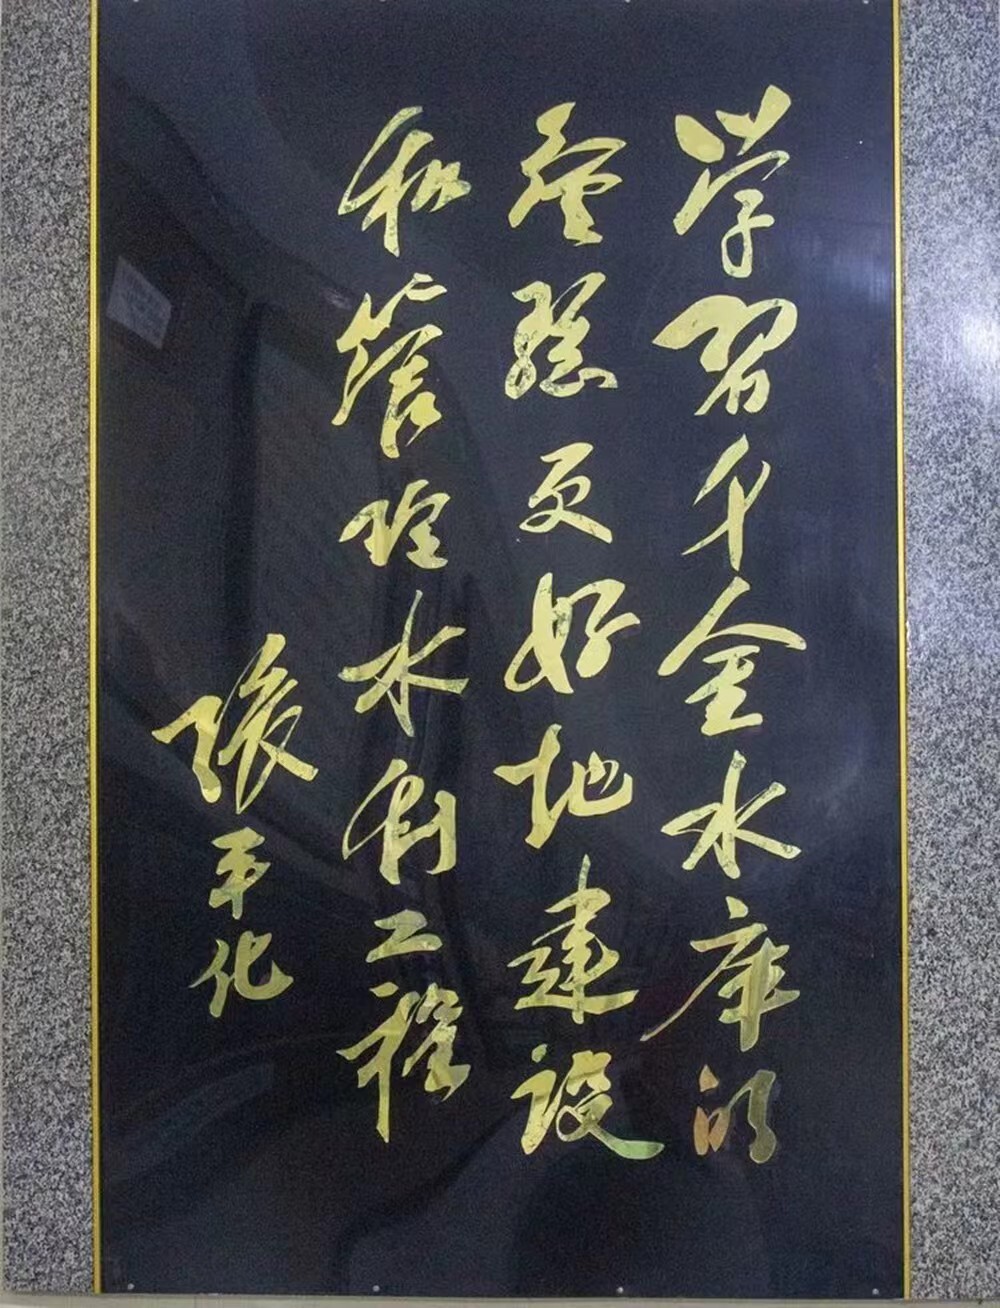 学习千金水库的
经验更好地建设
和管理水利工程
张平化